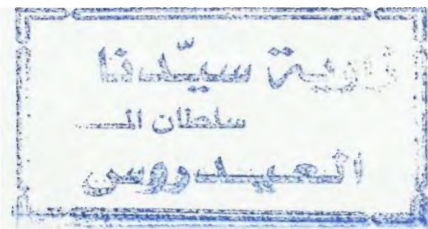 زاوية سيّدنا
سلطان الـــ
العيـــدروس